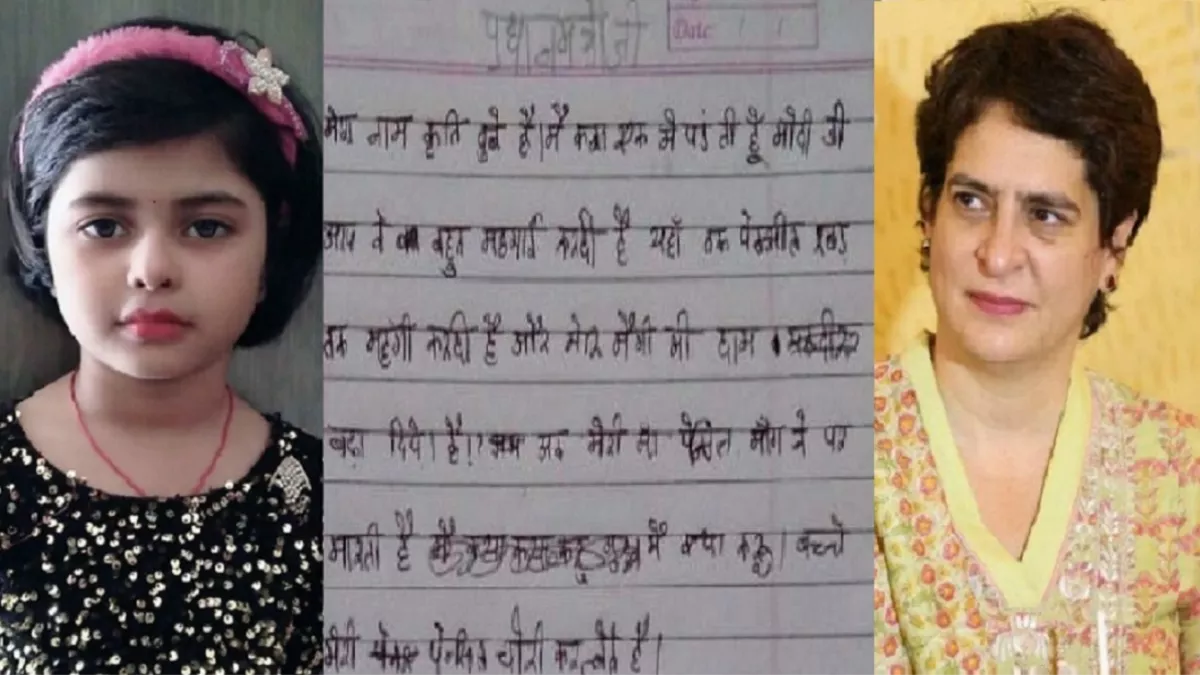 प्रधानमंत्री जी
Date / /
मेरा नाम कृति दुबे है। मै कक्षा एक मे पढ़ ती हूँ मोदी जी
आप ने बहुत महगाई करदी है यहाँ तक पेन्सील रबड़
तक महंगी करदी है और मेरे मैगी की दाम भी
बढ़ा दिये। है। अब मेरी माँ पेन्सिल माँग ने पर
मारती है मैं क्या करू। बच्चे
मेरी पेन्सिल चोरी करलेते है।